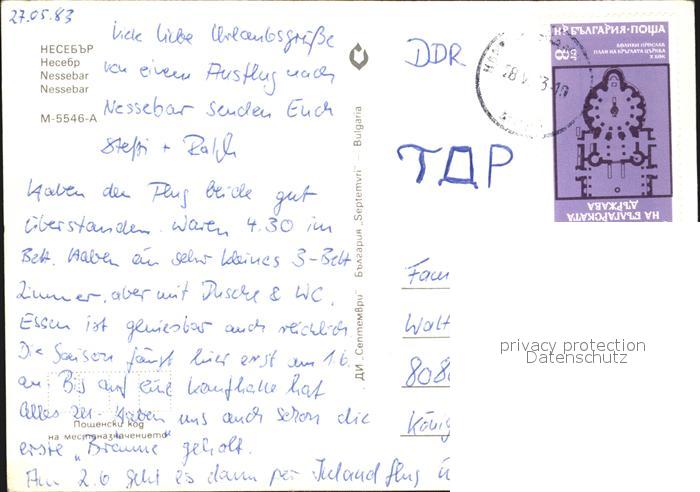 27.05.83
НЕСЕБЪР
Несебр
Nessebar
Nessebar
М-5546-А
Viele liebe Urlaubsgrüße
von einem Ausflug nach
Nessebar senden Euch
Steffi + Ralph
Haben den Flug beide gut
überstanden. Waren 4.30 im
Bett. Haben ein sehr kleines 3-Bett
Zimmer, aber mit Dusche & WC.
Essen ist geniesbar auch reichlich
Die Saison fängt hier erst am 1.6.
an Bis auf eine Kaufhalle hat
alles zu. Haben uns auch schon die
erste „Bräune" geholt.
Am 2.6 geht es dann per Inlandflug
Пощенски код
на местоназначението
ДИ „Септември" България „Septemvri" — Bulgaria
DDR
ТДР
Fam
Walt
808
König
НР БЪЛГАРИЯ·ПОЩА
ВЕЛИКИ ПРЕСЛАВ
ПЛАН НА КРЪГЛАТА ЦЪРКВА
X ВЕК
8
НА БЪЛГАРСКАТА
ДЪРЖАВА
privacy protection
Datenschutz